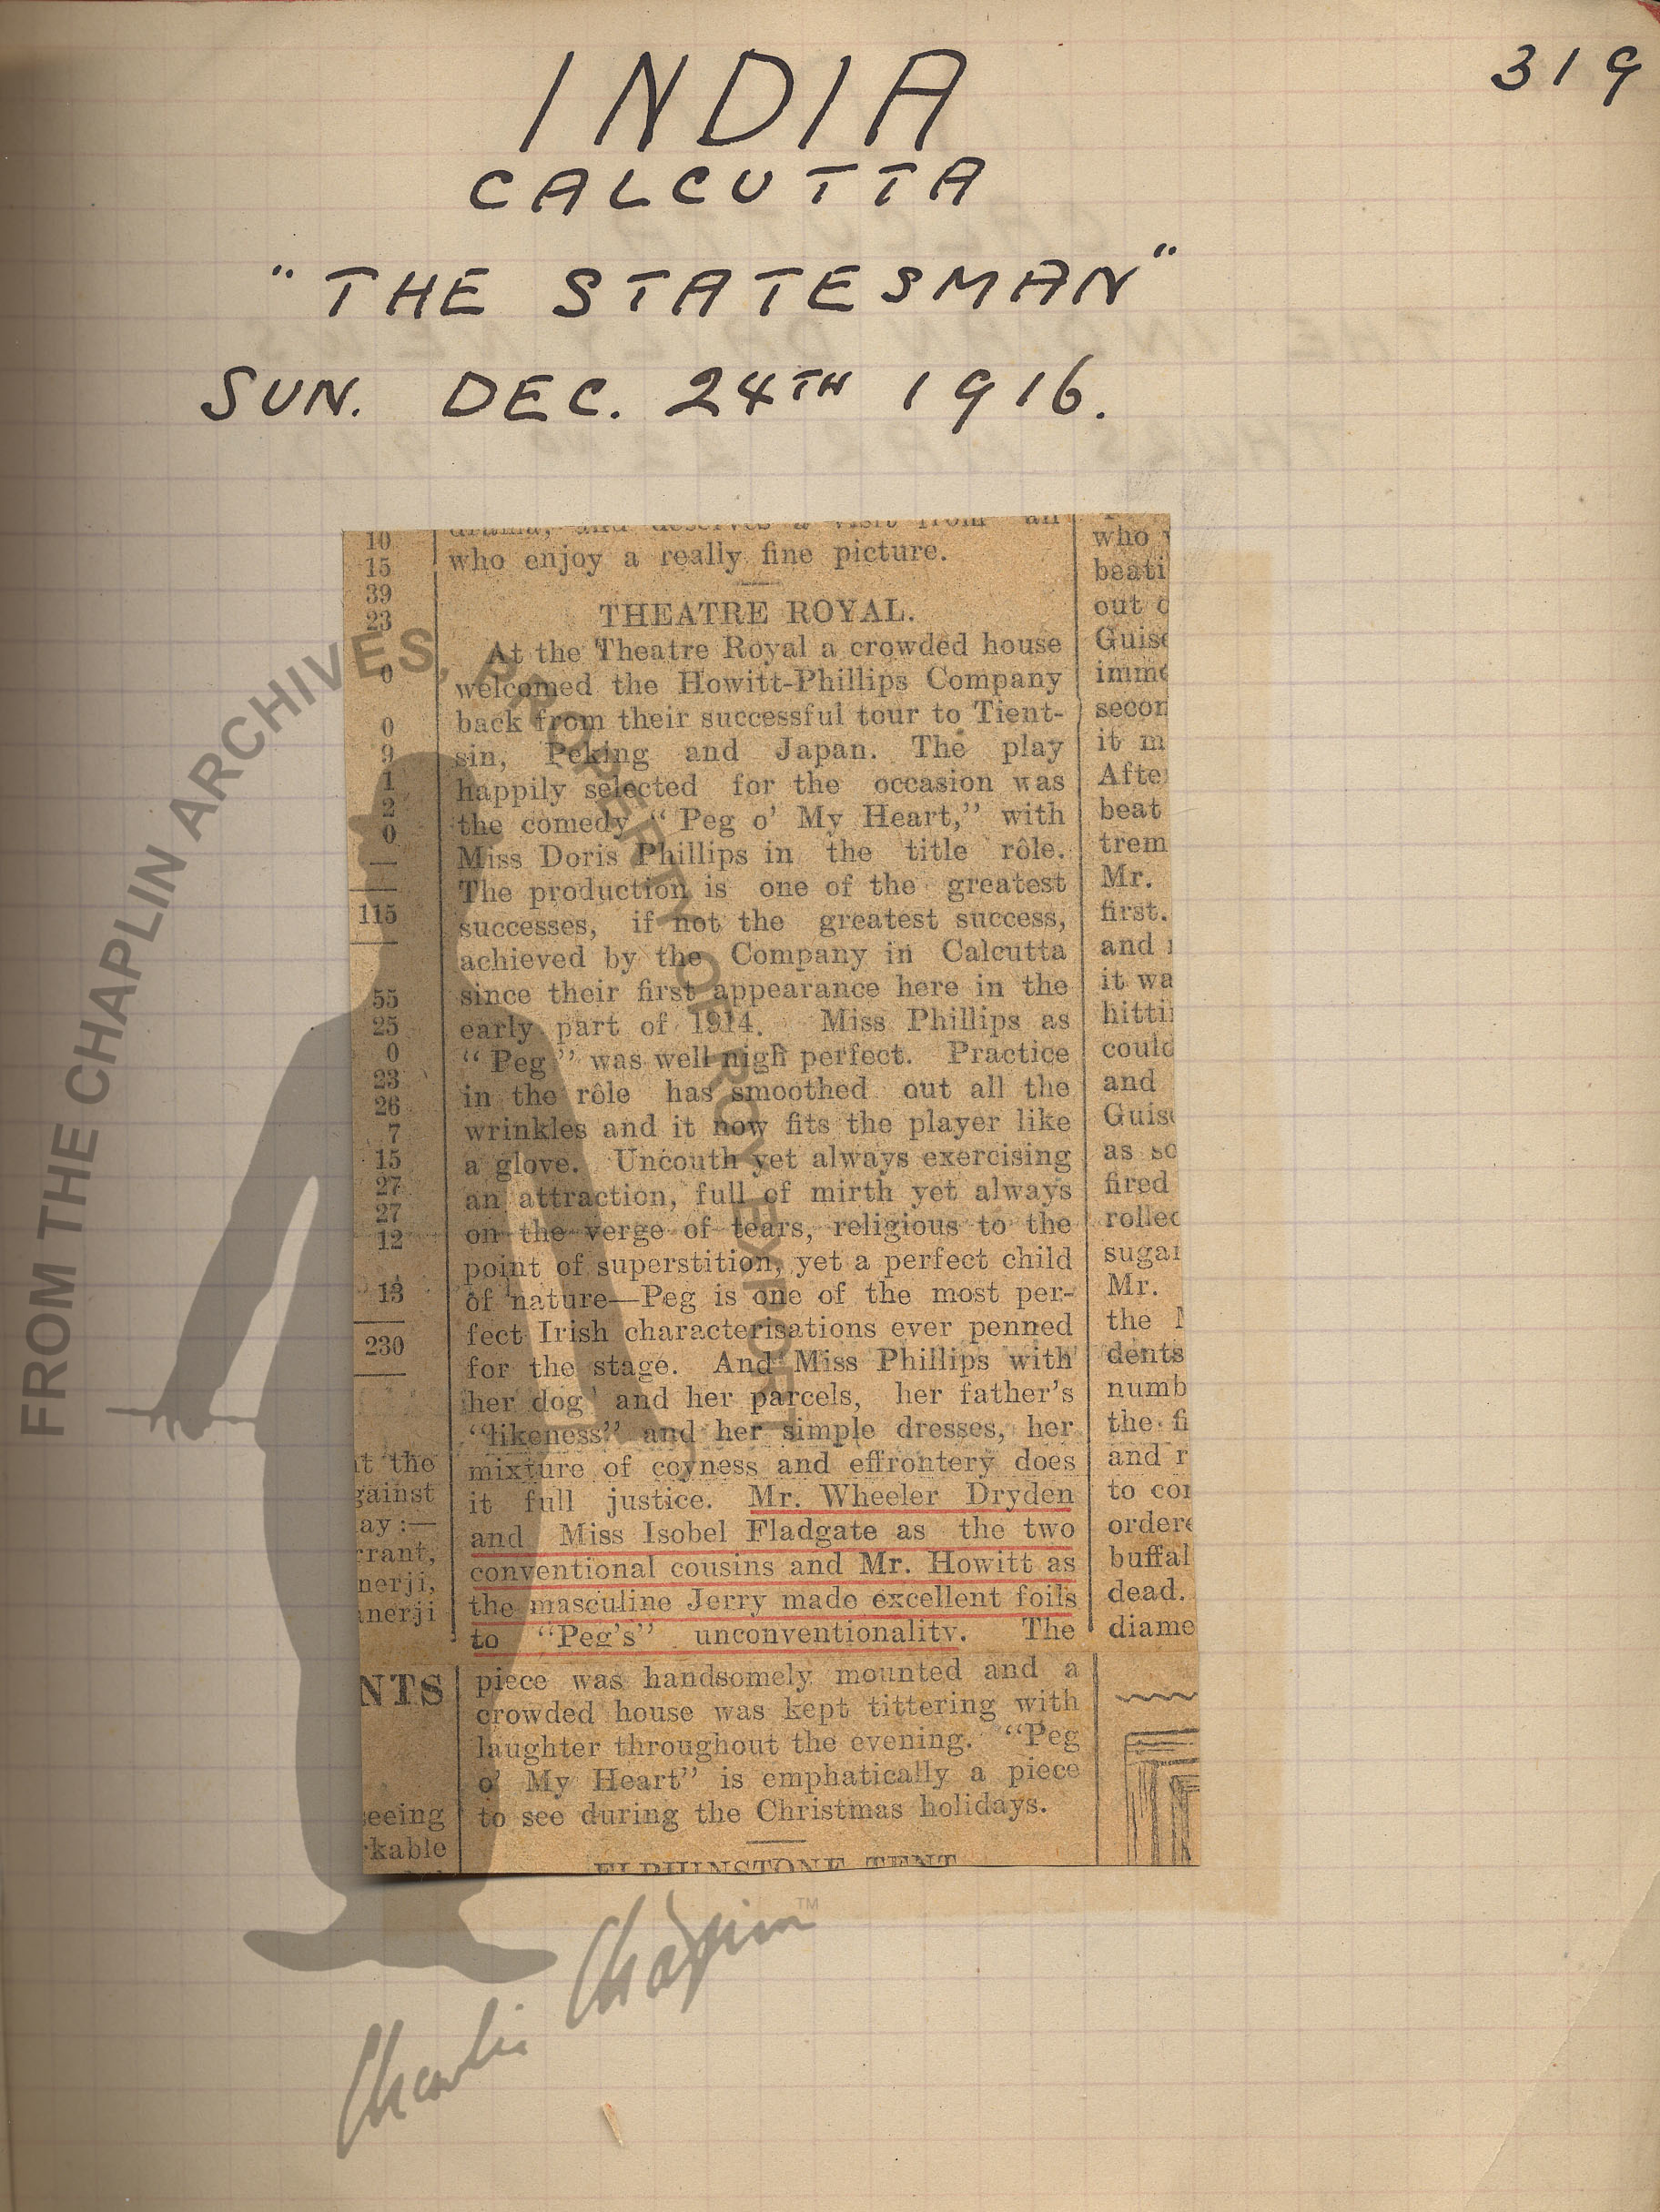 319
INDIA
CALCUTTA
"THE STATESMAN"
SUN. DEC. 24TH 1916.
drama, and deserves a visit from all
who enjoy a really fine picture.
THEATRE ROYAL.
At the Theatre Royal a crowded house
welcomed the Howitt-Phillips Company
back from their successful tour to Tient-
sin, Peking and Japan. The play
happily selected for the occasion was
the comedy "Peg o' My Heart," with
Miss Doris Phillips in the title rôle.
The production is one of the greatest
successes, if not the greatest success,
achieved by the Company in Calcutta
since their first appearance here in the
early part of 1914. Miss Phillips as
"Peg" was well-nigh perfect. Practice
in the rôle has smoothed out all the
wrinkles and it now fits the player like
a glove. Uncouth yet always exercising
an attraction, full of mirth yet always
on the verge of tears, religious to the
point of superstition, yet a perfect child
of nature—Peg is one of the most per-
fect Irish characterisations ever penned
for the stage. And Miss Phillips with
her dog and her parcels, her father's
"likeness" and her simple dresses, her
mixture of coyness and effrontery does
it full justice. Mr. Wheeler Dryden
and Miss Isobel Fladgate as the two
conventional cousins and Mr. Howitt as
the masculine Jerry made excellent foils
to "Peg's" unconventionality. The
piece was handsomely mounted and a
crowded house was kept tittering with
laughter throughout the evening. "Peg
o' My Heart" is emphatically a piece
to see during the Christmas holidays.
ELPHINSTONE TENT
10
15
39
23
0
0
9
1
2
0
115
55
25
0
23
26
7
15
27
27
12
13
230
it the
gainst
ay:—
rrant,
nerji,
anerji
NTS
seeing
rkable
who
beati
out
Guise
imme
secon
it m
Afte
beat
trem
Mr.
first.
and
it wa
hittin
could
and
Guise
as so
fired
rolled
sugar
Mr.
the
dents
numb
the fi
and r
to con
ordere
buffal
dead.
diame
FROM THE CHAPLIN ARCHIVES, PROPERTY OF ROY EXPORT
Charlie Chaplin™